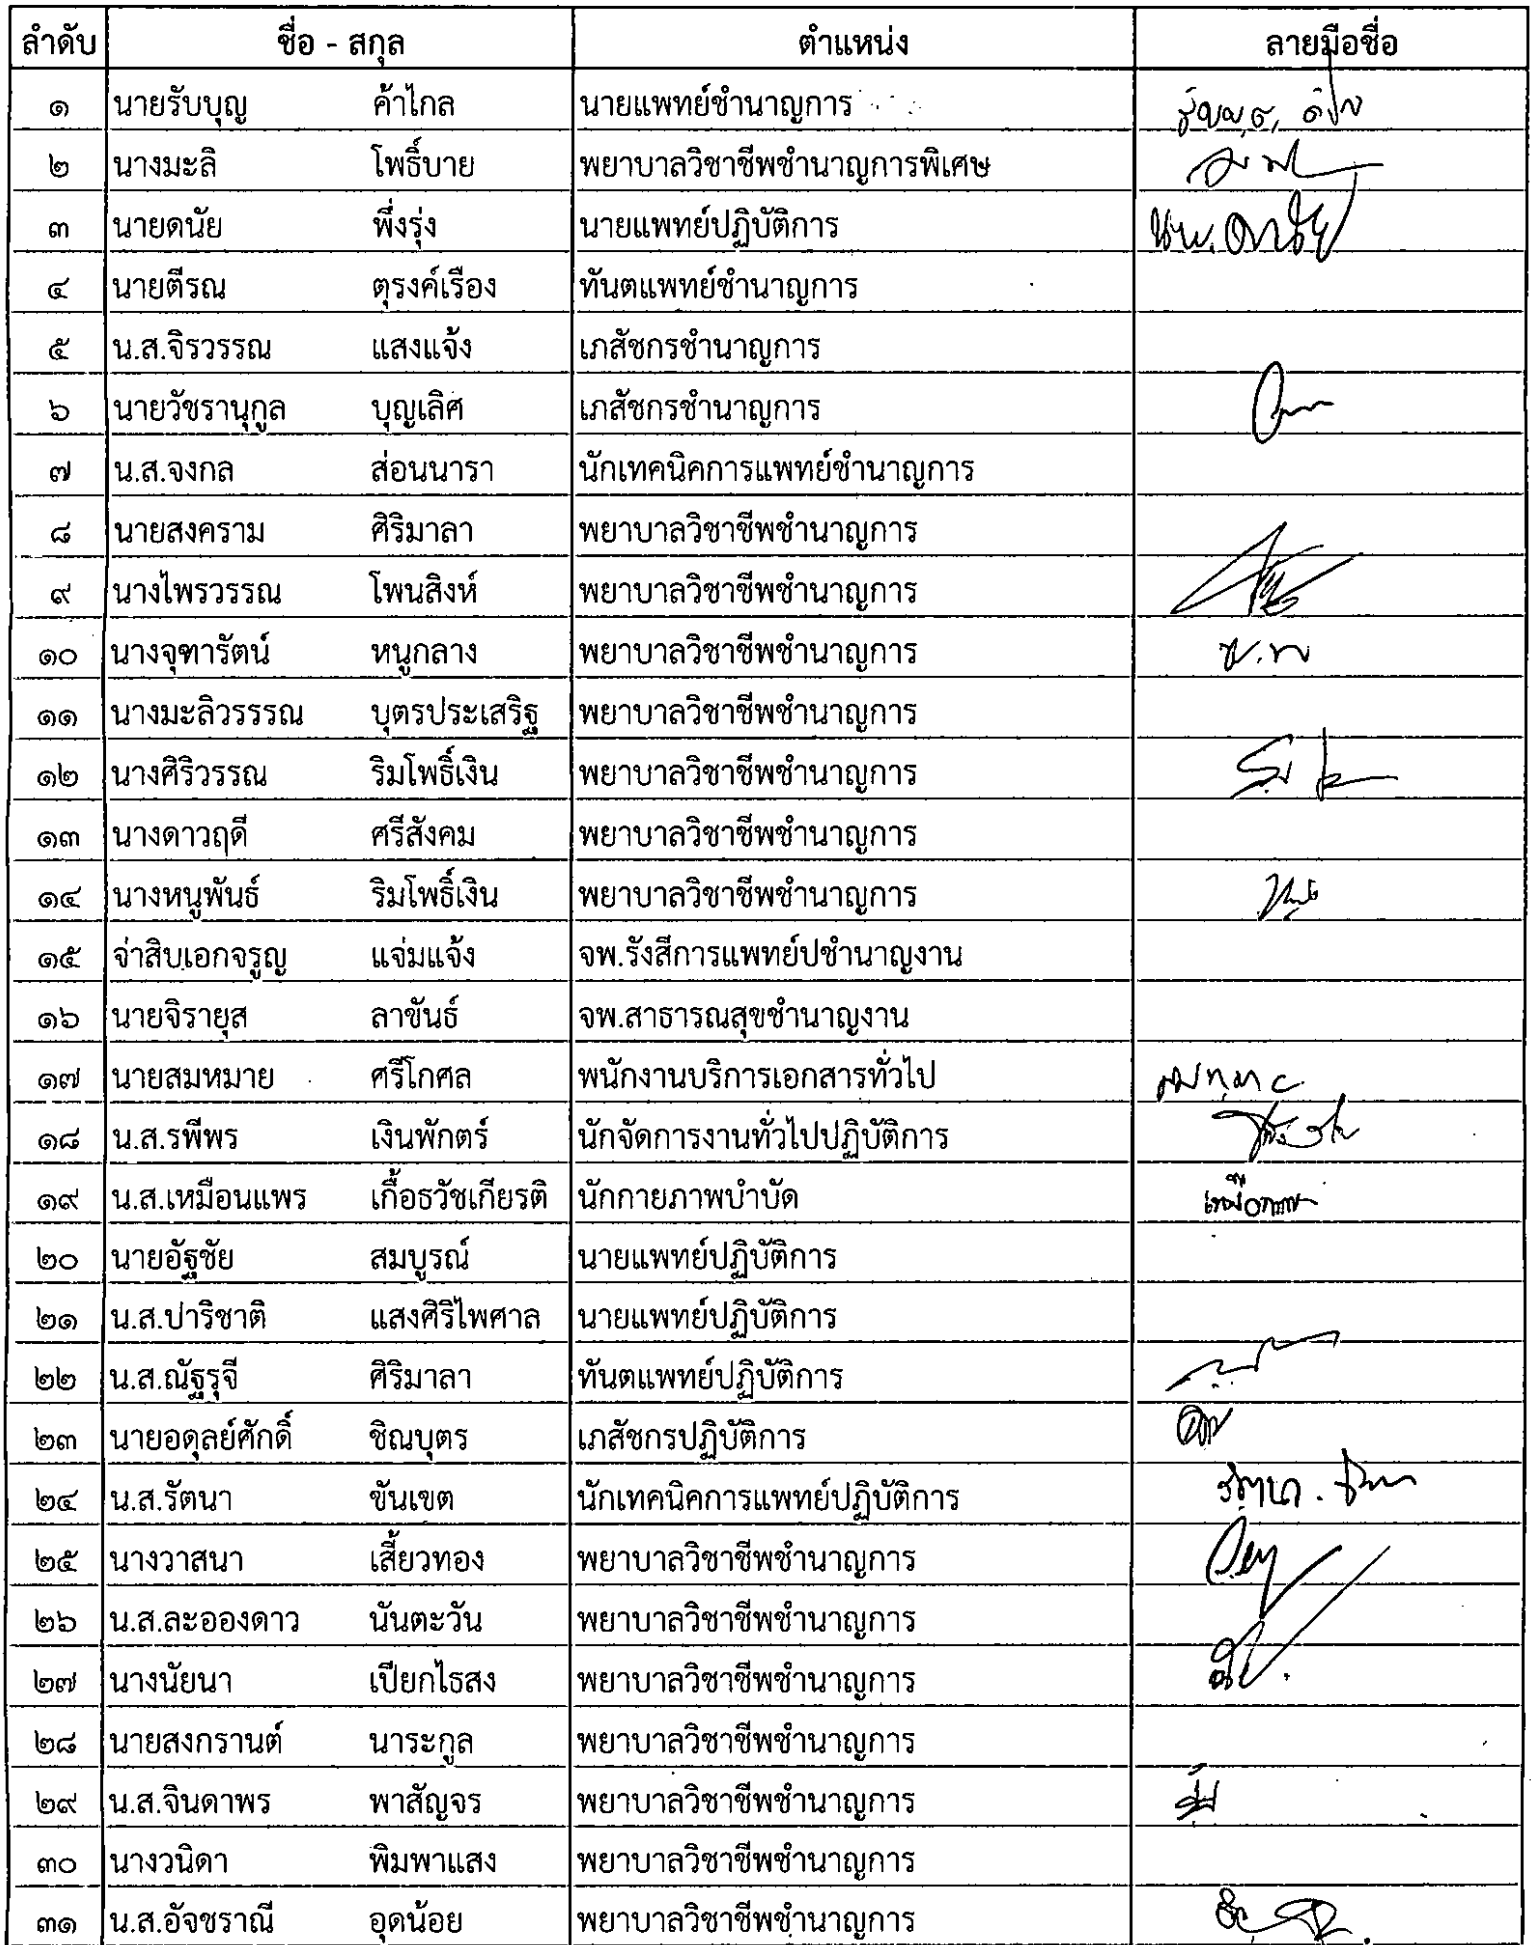 ลำดับ ชื่อ - สกุล ตำแหน่ง ลายมือชื่อ
๑ นายรับบุญ ค้าไกล นายแพทย์ชำนาญการ
๒ นางมะลิ โพธิ์บาย พยาบาลวิชาชีพชำนาญการพิเศษ
๓ นายดนัย พึ่งรุ่ง นายแพทย์ปฏิบัติการ นพ.ดนัย
๔ นายตีรณ ตุรงค์เรือง ทันตแพทย์ชำนาญการ
๕ น.ส.จิรวรรณ แสงแจ้ง เภสัชกรชำนาญการ
๖ นายวัชรานุกูล บุญเลิศ เภสัชกรชำนาญการ
๗ น.ส.จงกล ส่อนนารา นักเทคนิคการแพทย์ชำนาญการ
๘ นายสงคราม ศิริมาลา พยาบาลวิชาชีพชำนาญการ
๙ นางไพรวรรณ โพนสิงห์ พยาบาลวิชาชีพชำนาญการ
๑๐ นางจุฑารัตน์ หนูกลาง พยาบาลวิชาชีพชำนาญการ
๑๑ นางมะลิวรรรณ บุตรประเสริฐ พยาบาลวิชาชีพชำนาญการ
๑๒ นางศิริวรรณ ริมโพธิ์เงิน พยาบาลวิชาชีพชำนาญการ
๑๓ นางดาวฤดี ศรีสังคม พยาบาลวิชาชีพชำนาญการ
๑๔ นางหนูพันธ์ ริมโพธิ์เงิน พยาบาลวิชาชีพชำนาญการ
๑๕ จ่าสิบเอกจรูญ แจ่มแจ้ง จพ.รังสีการแพทย์ปชำนาญงาน
๑๖ นายจิรายุส ลาขันธ์ จพ.สาธารณสุขชำนาญงาน
๑๗ นายสมหมาย ศรีโกศล พนักงานบริการเอกสารทั่วไป
๑๘ น.ส.รพีพร เงินพักตร์ นักจัดการงานทั่วไปปฏิบัติการ
๑๙ น.ส.เหมือนแพร เกื้อธวัชเกียรติ นักกายภาพบำบัด
๒๐ นายอัฐชัย สมบูรณ์ นายแพทย์ปฏิบัติการ
๒๑ น.ส.ปาริชาติ แสงศิริไพศาล นายแพทย์ปฏิบัติการ
๒๒ น.ส.ณัฐรุจี ศิริมาลา ทันตแพทย์ปฏิบัติการ
๒๓ นายอดุลย์ศักดิ์ ชิณบุตร เภสัชกรปฏิบัติการ
๒๔ น.ส.รัตนา ขันเขต นักเทคนิคการแพทย์ปฏิบัติการ รัตนา
๒๕ นางวาสนา เสี้ยวทอง พยาบาลวิชาชีพชำนาญการ
๒๖ น.ส.ละอองดาว นันตะวัน พยาบาลวิชาชีพชำนาญการ
๒๗ นางนัยนา เปียกไธสง พยาบาลวิชาชีพชำนาญการ
๒๘ นายสงกรานต์ นาระกูล พยาบาลวิชาชีพชำนาญการ
๒๙ น.ส.จินดาพร พาสัญจร พยาบาลวิชาชีพชำนาญการ
๓๐ นางวนิดา พิมพาแสง พยาบาลวิชาชีพชำนาญการ
๓๑ น.ส.อัจชราณี อุดน้อย พยาบาลวิชาชีพชำนาญการ